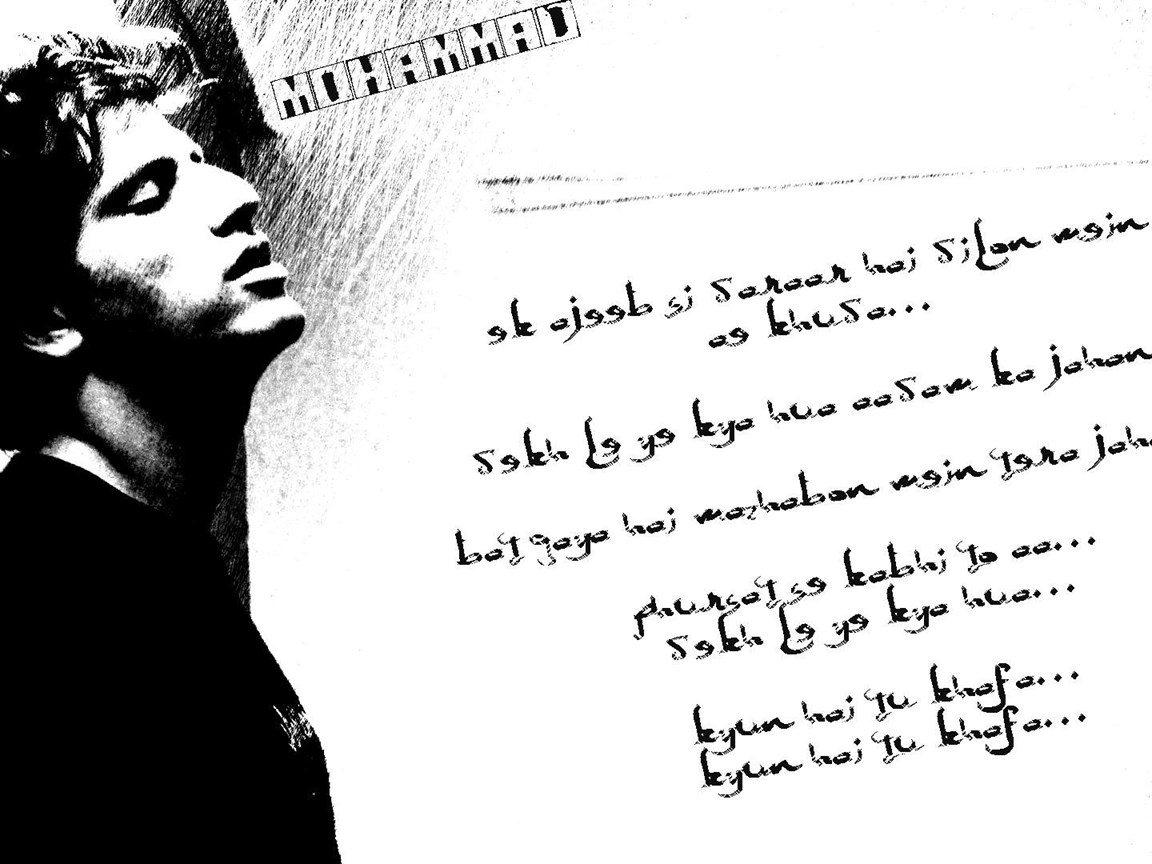 MUHAMMAD
ek ajeeb si daraar hai dilon mein
ae khuda...
dekh le ye kya hua aadam ka jahan
bat gaya hai mazhabon mein tera jaha
phursat se kabhi to aa...
dekh le ye kya hua...
kyun hai tu khafa...
kyun hai tu khafa...